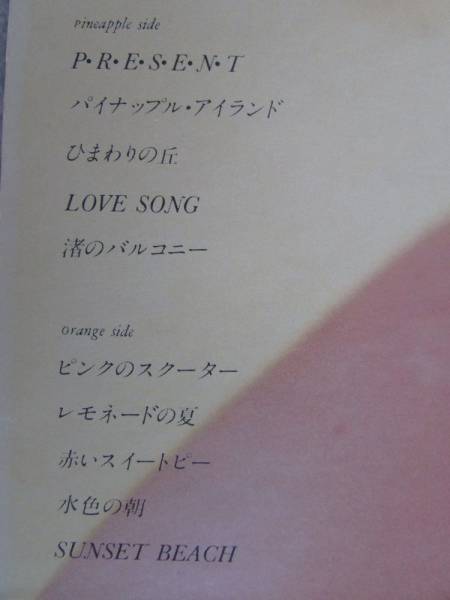 pineapple side
P・R・E・S・E・N・T
パイナップル・アイランド
ひまわりの丘
LOVE SONG
渚のバルコニー
orange side
ピンクのスクーター
レモネードの夏
赤いスイートピー
水色の朝
SUNSET BEACH